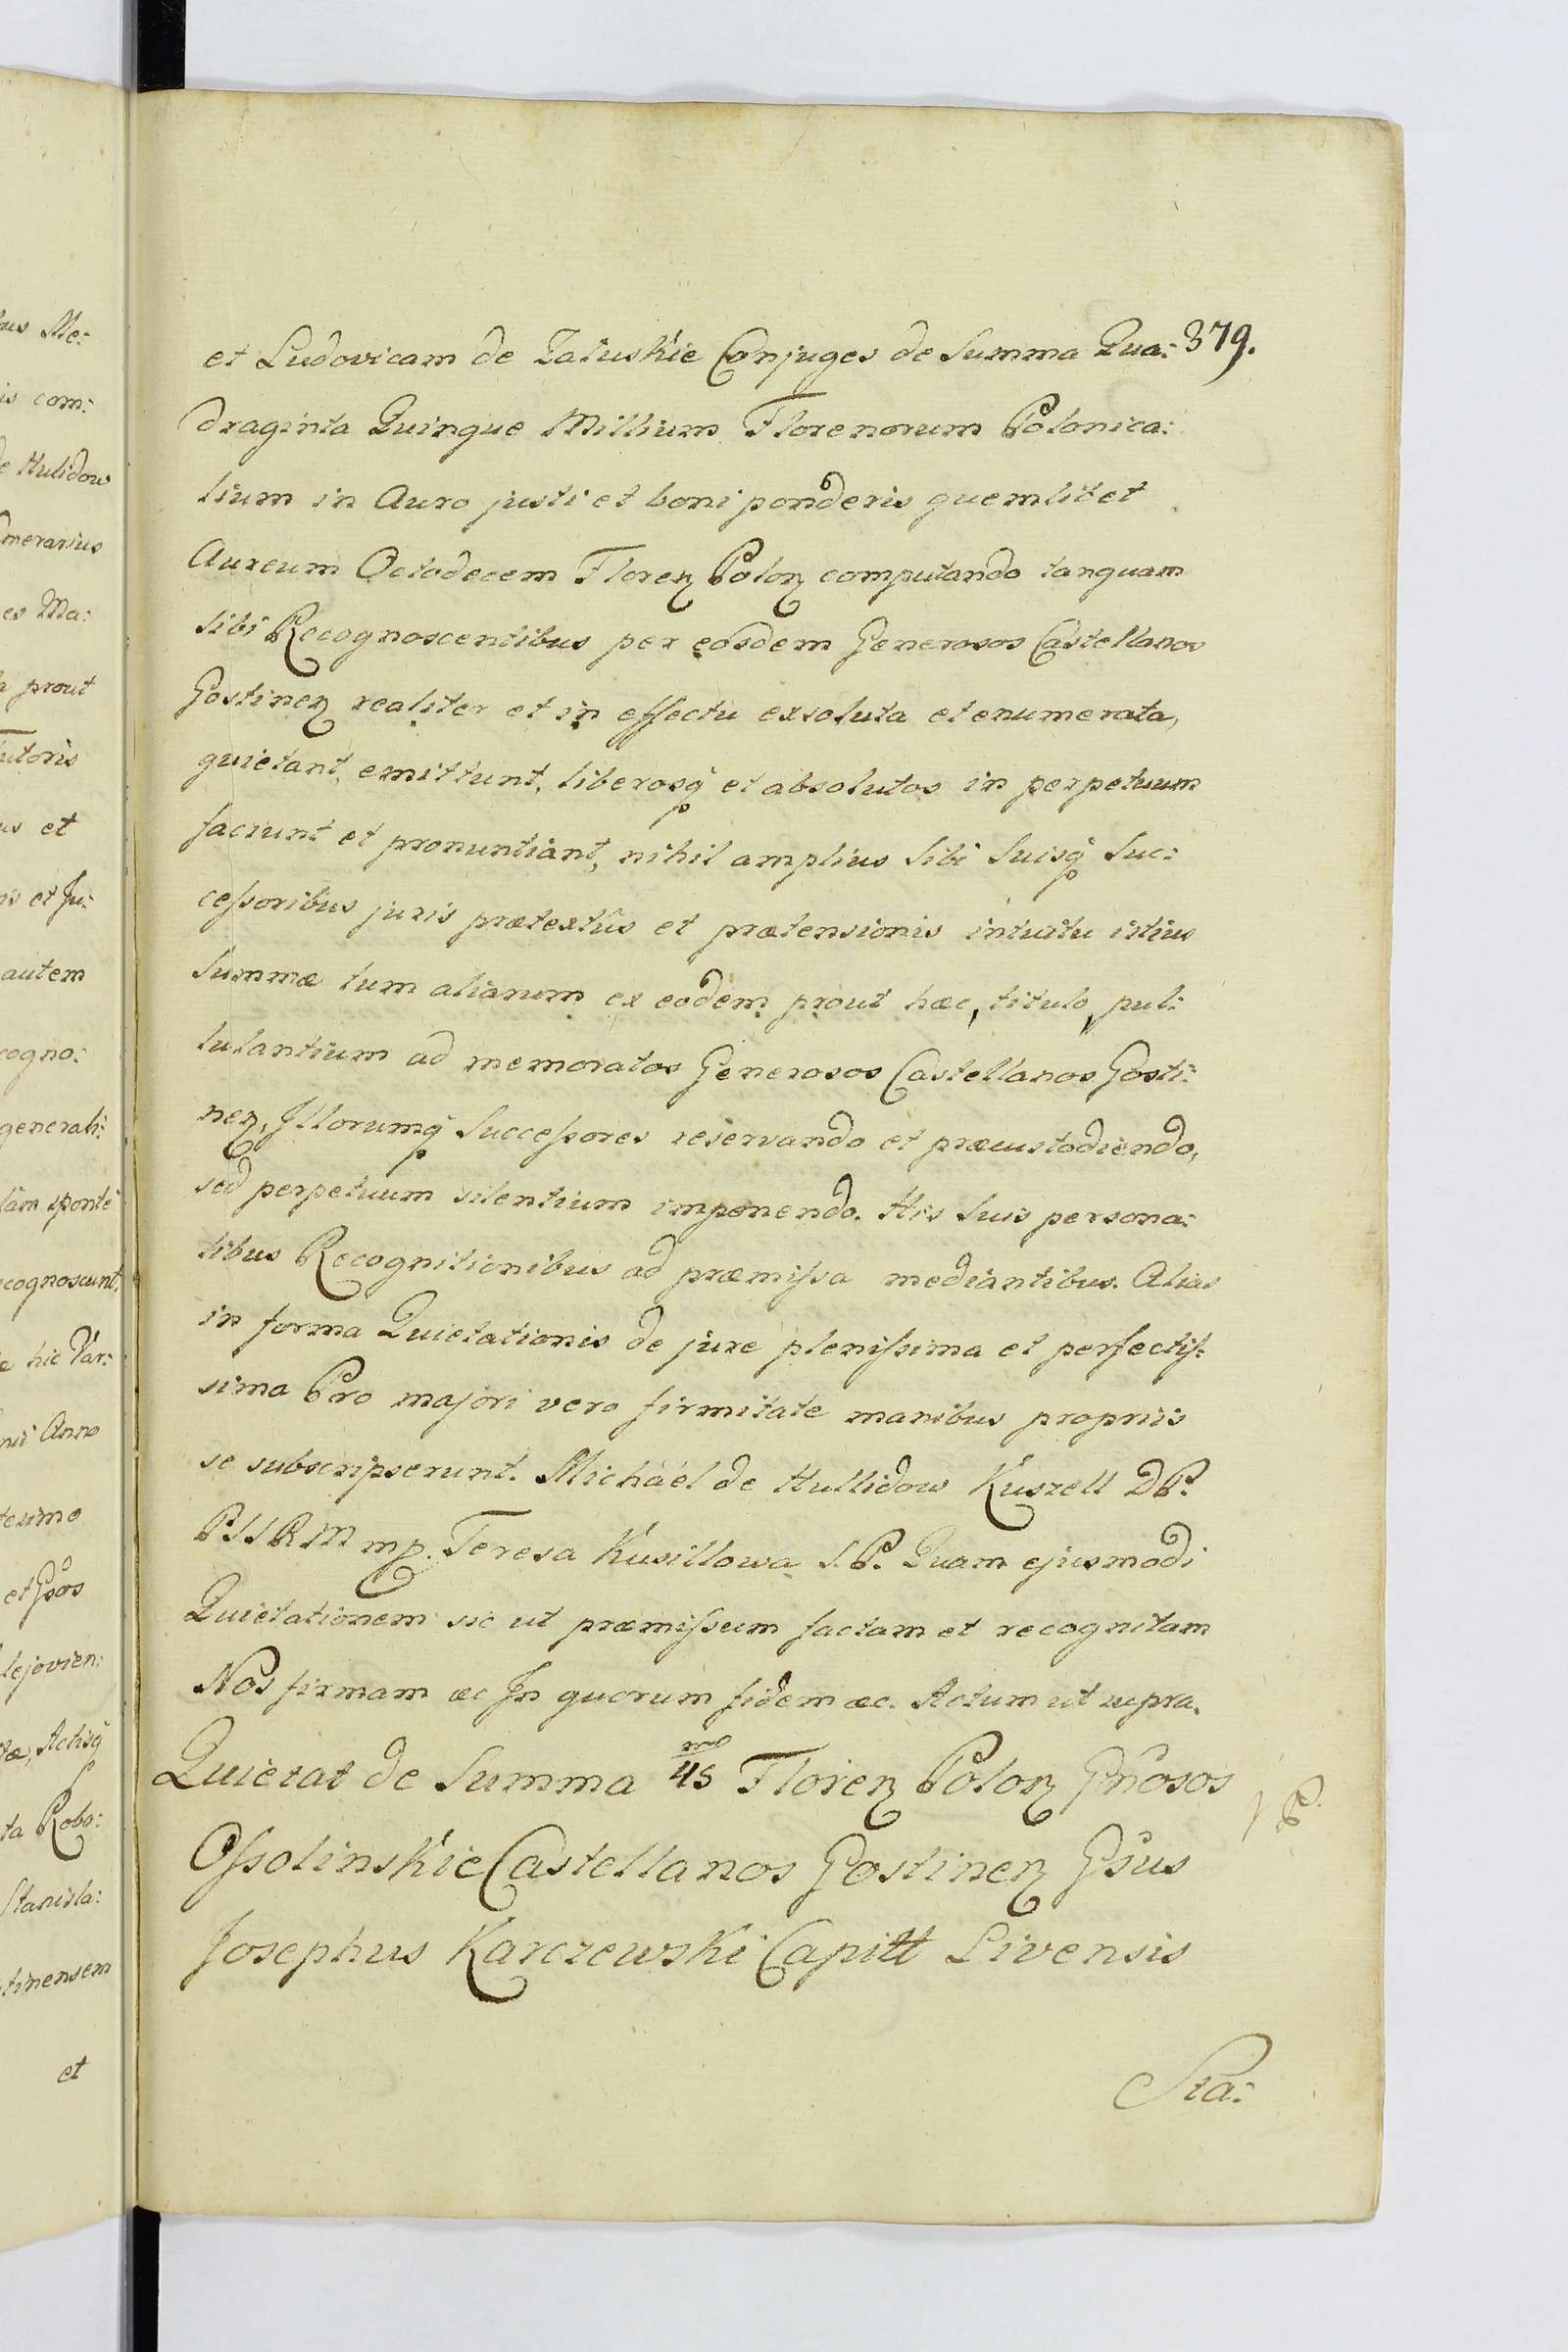 et Ludovicam de Załuskie Conjuges de Summa Qua: 379.
draginta Quinque Millium Florenorum Polonica:
lium in Auro justi et boni ponderis quemlibet
Aureum Octodecem Floren Polon computando tanquam
sibi Recognoscentibus per eosdem Generosos Castellanos
Gostinen realiter et in effectu exsoluta et enumerata,
quietant, emittunt, liberosq et absolutos in perpetuum
faciunt et pronuntiant, nihil amplius Sibi Suisq Suc:
cessoribus juris prætextûs et prætensionis intuitu istius
Summæ tum aliarum ex eodem prout hæc, titulo, pul:
lulantium ad memoratos Generosos Castellanos Gosti:
nen, Illorumq Successores reservando et præcustodiendo,
sed perpetuum silentium imponendo. His Suis persona:
libus Recognitionibus ad præmissa mediantibus. Alias
in forma Quietationis de jure plenissima et perfectis:
sima Pro majori vero firmitate manibus propriis
se subscripserunt. Michaél de Hullidow Kuszell DP.
PSSRM mp. Teresa Kusillowa S.P. Quam ejusmodi
Quietationem sic ut præmissum factam et recognitam
Nos firmam æc In quorum fidem æc. Actum ut supra.
Quietat de Summa 45 Floren Polon Gnosos
Ossolinskie Castellanos Gostinen Gsus
Josephus Karczewski Capitt Livensis
Sta:
bus Me:
is com:
de Hulidow
merarius
es Ma:
a prout
Tutoris
us et
is et Ju:
autem
cogno:
generali:
lam sponte
ecognoscunt,
e hic Var:
Anno
tesimo
et Gsos
lejovien:
tæ, Actisq
ta Robo:
Stanisla:
tinensem
et